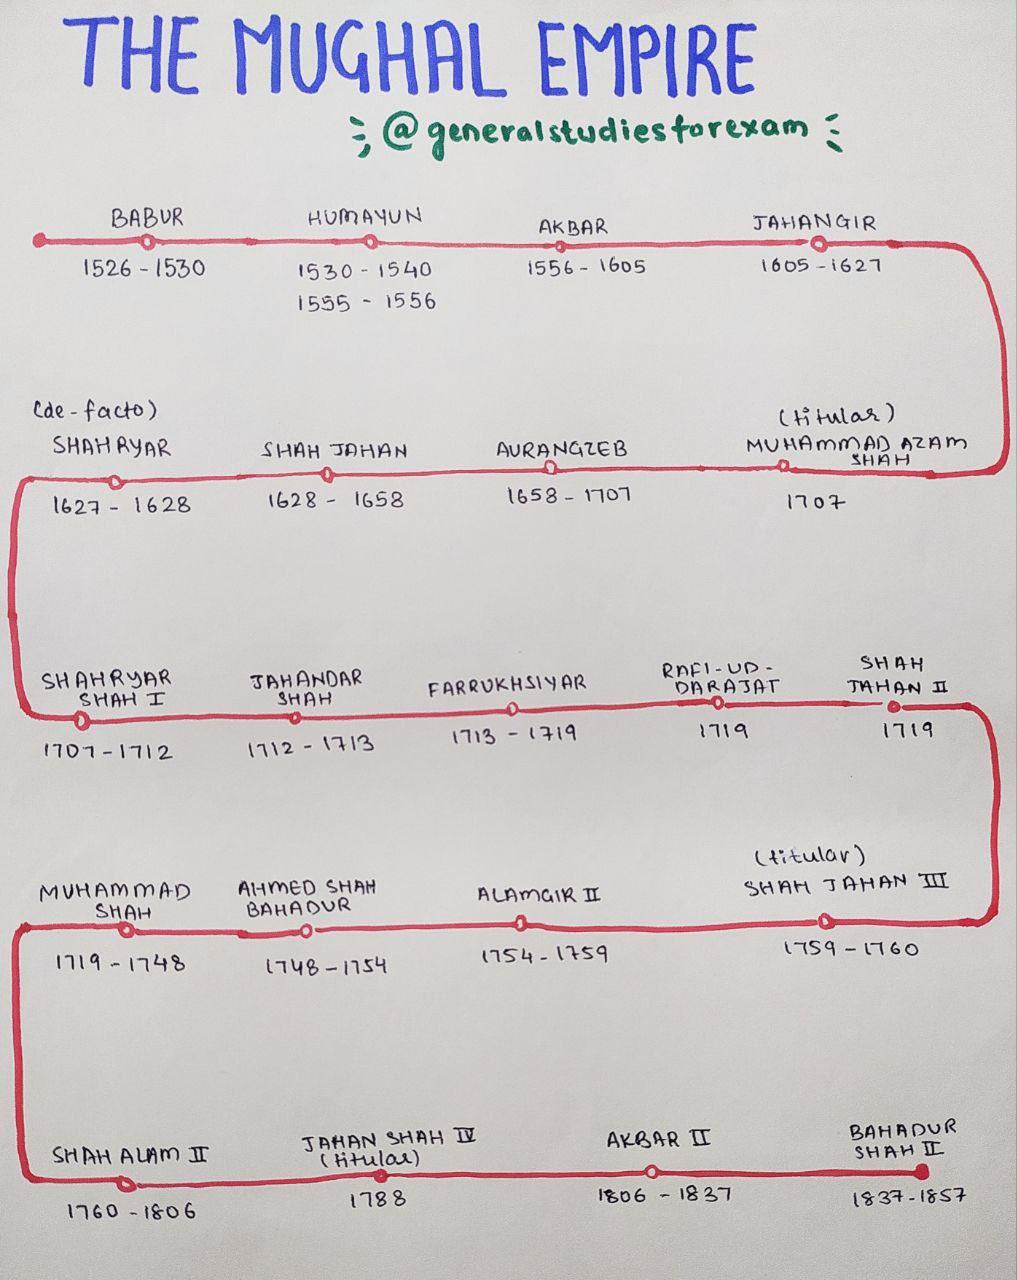 THE MUGHAL EMPIRE
@generalstudiesforexam
BABUR
1526 - 1530
HUMAYUN
1530 - 1540
1555 - 1556
AKBAR
1556 - 1605
JAHANGIR
1605 - 1627
(de-facto)
SHAHRYAR
1627 - 1628
SHAH JAHAN
1628 - 1658
AURANGZEB
1658 - 1707
(titular)
MUHAMMAD AZAM
SHAH
1707
SHAHRYAR
SHAH I
1707 - 1712
JAHANDAR
SHAH
1712 - 1713
FARRUKHSIYAR
1713 - 1719
RAFI-UD-
DARAJAT
1719
SHAH
JAHAN II
1719
MUHAMMAD
SHAH
1719 - 1748
AHMED SHAH
BAHADUR
1748 - 1754
ALAMGIR II
1754 - 1759
(titular)
SHAH JAHAN III
1759 - 1760
SHAH ALAM II
1760 - 1806
JAHAN SHAH IV
(titular)
1788
AKBAR II
1806 - 1837
BAHADUR
SHAH II
1837 - 1857